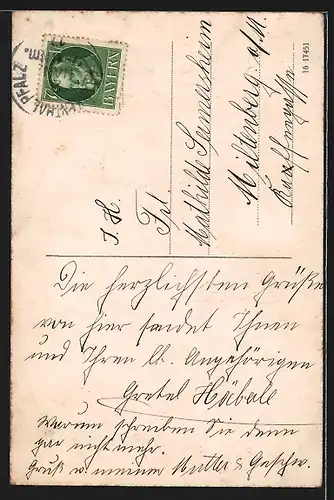 PFALZ
BAYERN
16 17451
I. H.
Frl.
Mathilde
Miltenberg a/M
Die herzlichsten Grüße
von hier sendet Ihnen
und Ihren lb. Angehörigen
Gretel Häberle
Warum schreiben Sie denn
gar nicht mehr.
Gruß v. meiner Mutter & Geschw.